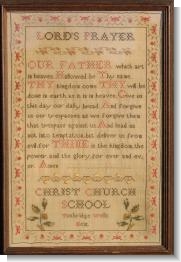 LORD'S PRAYER
OUR FATHER which art
in heaven Hallowed be Thy name
THY Kingdom come THY will be
done in earth as it is in heaven Give us
this day our daily bread And forgive
us our trespasses as we forgive them
that trespass against us And lead us
not into temptation but deliver us from
evil for THINE is the kingdom the
power and the glory for ever and ev
er Amen
CHRIST CHURCH
SCHOOL
Tunbridge Wells